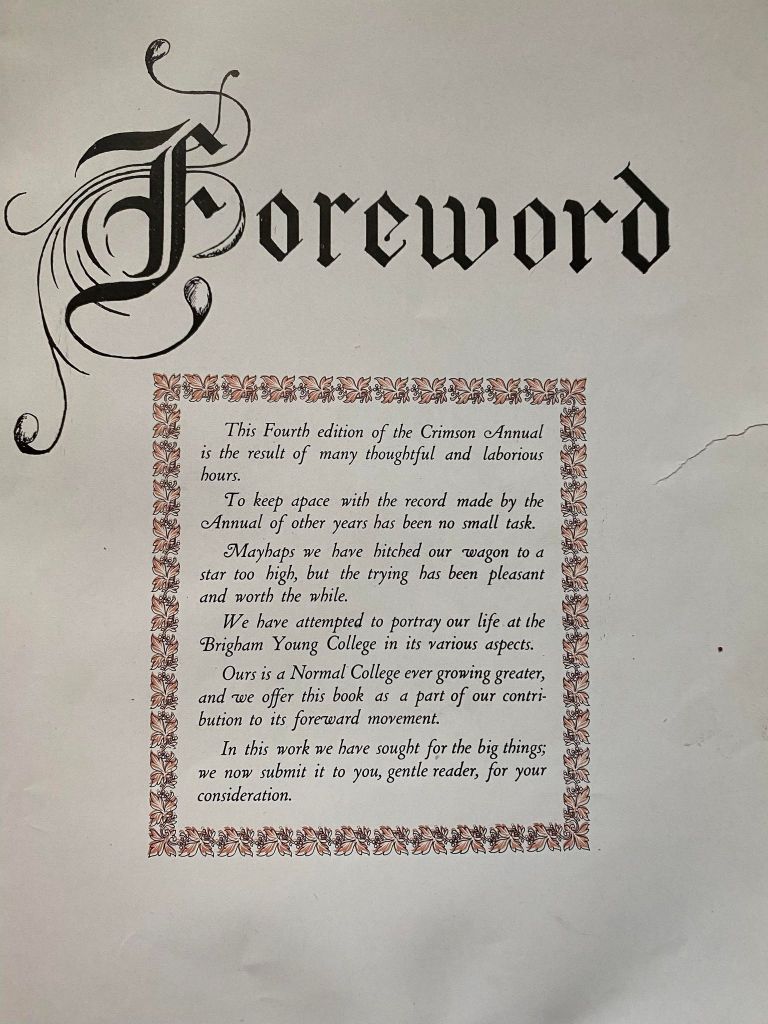 Foreword
This Fourth edition of the Crimson Annual
is the result of many thoughtful and laborious
hours.
To keep apace with the record made by the
Annual of other years has been no small task.
Mayhaps we have hitched our wagon to a
star too high, but the trying has been pleasant
and worth the while.
We have attempted to portray our life at the
Brigham Young College in its various aspects.
Ours is a Normal College ever growing greater,
and we offer this book as a part of our contri-
bution to its foreward movement.
In this work we have sought for the big things;
we now submit it to you, gentle reader, for your
consideration.